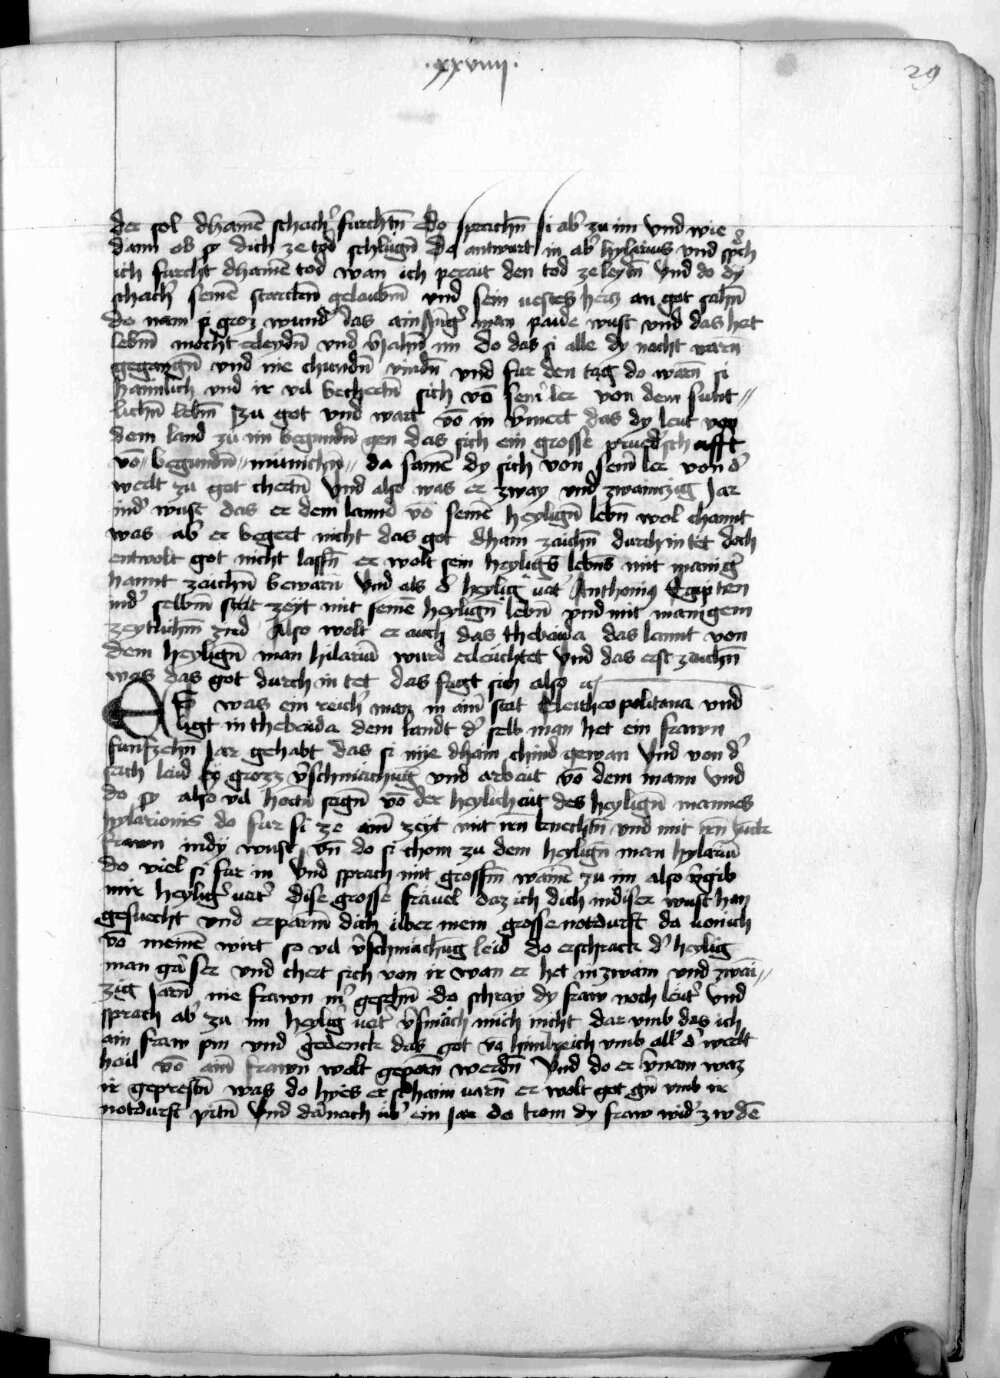 ·xxviiij·
29
der sol dhainē schach' furchtn̄ Do sprachn̄ si ab' zu im Vnd wie
dann ob sy dich ze tod schlugn̄ Do antwurt in ab' hylarius vnd sp̄ch
ich furcht dhainē tod wan ich perait den tod ze leydn̄ Vnd do dy
schach' seinē starckn̄ gelaubn̄ vnd sein uestes hercz an got sahn̄
do nam si groz wund' das ain Jūg' man paide wust vnd das het
lebn̄ mocht erleydn̄ vnd v'Jahn̄ im do das si alle dy nacht warn̄
gegangn̄ vnd nie chundn̄ vindn̄ vnd fur den tag do warn̄ si
haimlich vnd ir vil bechertn̄ sich vō sein' ler von dem sunt-
lichn̄ lebn̄ zu got vnd wart vō in v'mert das dy leut von
dem land zu im begundn̄ gen das sich ein grosse prued'schafft
vō begundn̄ munichn̄ da samē dy sich von sein' ler von d'
werlt zu got chertn̄ Vnd also was er zway vnd zwainczig Jar
in d' wust das er dem lannd vō seinē heylign̄ lebn̄ wol channt
was ab' er begert nicht das got dhain zaichn̄ durch in tet doch
entwolt got nicht lassn̄ er wolt sein heyligs lebn̄s mit manig'
hannt zaichn̄ bewarn̄ Vnd als d' heylig uat' Anthonius Egipten
in d' selbn̄ zeyt mit seinē heylign̄ lebn̄ vnd mit manigem
zeytlichn̄ Also wolt er auch das thebaida das lannt von
dem heylign̄ man hilariū wurd erleuchtet Vnd das erst zaichn̄
was das got durch in tet das fugt sich also
ES was ein reich' man in ain' stat Eleutheo politana vnd
ligt in thebaida dem landt d' selb man het ein frawn
funfzehn̄ Jar gehabt das si nye dhain chind gewan Vnd von d'
sach laid sy grozz v'schmachūg vnd arbait vō dem mann Vnd
do sy also vil hortn̄ sagn̄ vō der heylichait des heylign̄ mannes
hylarionis do fur si ze ain' zeyt mit irn̄ knechtn̄ vnd mit irn̄
frawn in dy wust vn̄ do si chom zu dem heylign̄ man hylariū
do viel si fur in Vnd sprach mit grossm̄ wainē zu im also v'gib
mir heylig' uat' dise grosse fräuel daz ich dich in diser wust han
gesuecht vnd erparm̄ dich uber mein grosse notdurft do uon ich
vō meinē wirt so vil v'schmachūg leid do erschrack d' heylig
man gar ser vnd chert sich von ir wan er het in zwain vnd zwai-
zig Jarn̄ nie frawn m' gesehn̄ do schray dy fraw noch leut' Vnd
sprach ab' zu im heylig' uat' v'smäch mich nicht dar vmb das ich
ain fraw pin vnd gedenck das got vō himlreich vmb all' d' werlt
hail vō ain' frawn wolt geporn̄ werdn̄ Vnd do er v'nam waz
ir geprestn̄ was do hyes er sy haim uarn̄ er wolt got gn̄ vmb ir
notdurft pitn̄ Vnd darnach ub' ein Jar do kom dy fraw wid' zw dē